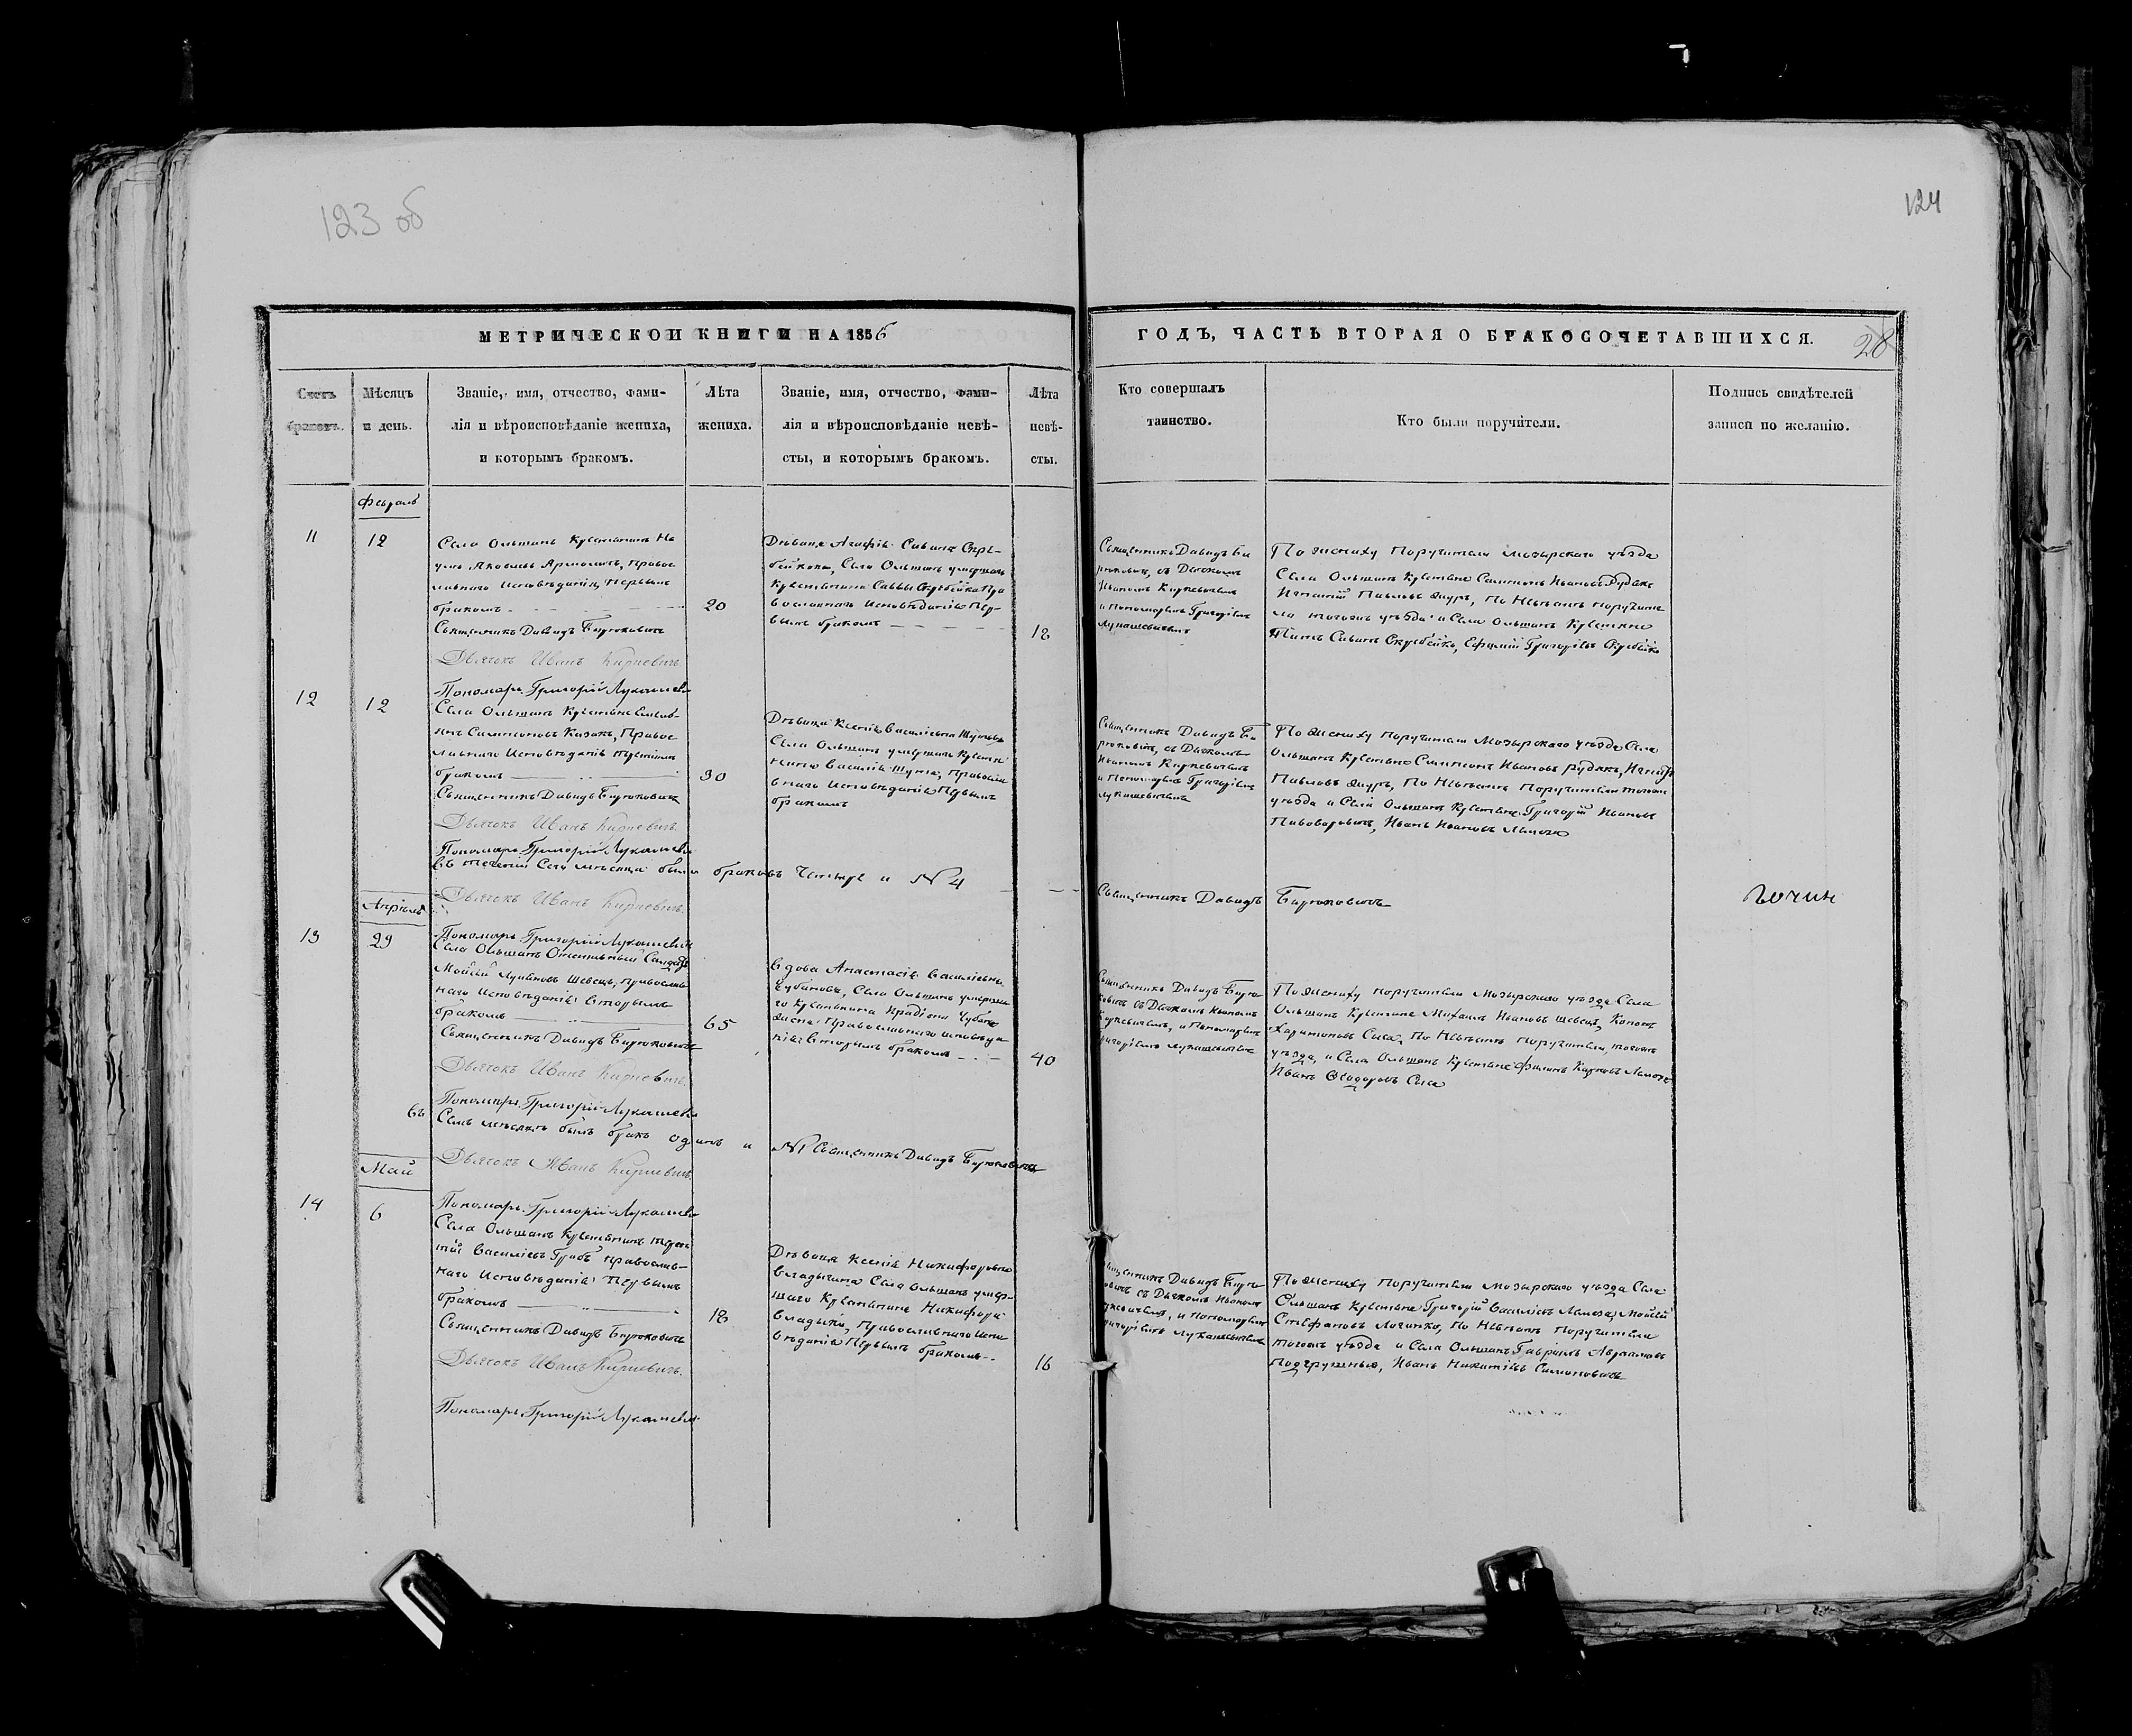 123 об
124
МЕТРИЧЕСКОЙ КНИГИ НА 1856
ГОДЪ, ЧАСТЬ ВТОРАЯ О БРАКОСОЧЕТАВШИХСЯ.
28
Счетъ браковъ.
Мѣсяцъ и день.
Званіе, имя, отчество, фами-
лія и вѣроисповѣданіе жениха,
и которымъ бракомъ.
Лѣта
жениха.
Званіе, имя, отчество, фами-
лія и вѣроисповѣданіе невѣ-
сты, и которымъ бракомъ.
Лѣта
невѣ-
сты.
Кто совершалъ
таинство.
Кто были поручители.
Подпись свидѣтелей
записи по желанію.
Февраль
11
12
Села Ольшанъ Крестьянинъ На
умъ Яковлевъ Ярмоличъ, Правос
лавнаго Исповѣданія, Первымъ
бракомъ
20
Священникъ Давидъ Бирюковичъ
Дьячокъ Иванъ Киркевичъ.
Пономарь Григорій Лукашеви
Дѣвица Агафія Савина Скре-
бейкова, Села Ольшанъ умершаго
Крестьянина Саввы Скребейка Пра
вославнаго Исповѣданія Пер-
вымъ бракомъ
18
Священникъ Давидъ Би
рюковичъ, съ Дьячкомъ
Иваномъ Киркевичемъ
и Пономаремъ Григоріемъ
Лукашевичемъ
По жениху Поручители Мозырскаго уѣзда
Села Ольшанъ Крестьяне Самсонъ Ивановъ Рудакъ
Игнатій Павловъ Жукъ, По Невѣстѣ поручите
ли тогожъ уѣзда и Села Ольшанъ Крестьяне
Титъ Савинъ Скребейко, Ефимій Григоріевъ Скребейко
12
12
Села Ольшанъ Крестьянинъ
Самсоновъ Казакъ, Правос
лавнаго Исповѣданія третімъ
бракомъ
30
Священникъ Давидъ Бирюковичъ
Дьячокъ Иванъ Киркевичъ.
Пономарь Григорій Лукашеви
Дѣвица Ксенія Васильевна
Села Ольшанъ умершаго Крестья
нина Василія Шута, Правосла
внаго Исповѣданія Первымъ
бракомъ
Священникъ Давидъ Би
рюковичъ, съ Дьячкомъ
Иваномъ Киркевичемъ
и Пономаремъ Григоріемъ
Лукашевичемъ
По Жениху поручители Мозырскаго уѣзда Села
Ольшанъ Крестьяне Самсонъ Ивановъ Рудакъ, Игнатій
Павловъ Жукъ, По Невѣстѣ Поручители тогожъ
уѣзда и Села Ольшанъ Крестьяне Григорій Ивановъ
Пивоваровичъ, Иванъ Ивановъ
Въ теченіи Сего мѣсяца было браковъ Четыре и № 4
Священникъ Давидъ Бирюковичъ
Дьячокъ Иванъ Киркевичъ.
Пономарь Григорій Лукашевич
Апрѣль
13
29
Села Ольшанъ Отставный Солдатъ
Мойсей Лукьяновъ Шевецъ, православ
наго Исповѣданія Вторымъ
бракомъ
65
Священникъ Давидъ Бирюковичъ
Дьячокъ Иванъ Киркевичъ.
Пономарь Григорій Лукашеви
Вдова Анастасія Васильевна
Чубанова, Села Ольшанъ умерша
го Крестьянина Чубана
жена Православнаго исповѣда
нія Вторымъ бракомъ
40
Священникъ Давидъ Бирю
ковичъ съ Дьячкомъ Иваномъ
Киркевичемъ, и Пономаремъ
Григоріемъ Лукашевичемъ
По Жениху поручители Мозырскаго уѣзда Села
Ольшанъ Крестьяне Михаилъ Ивановъ Шевецъ, Кононъ
Харитоновъ По Невѣстѣ Поручители, тогожъ
уѣзда, и Села Ольшанъ Крестьяне Филипъ Карповъ
Иванъ Ѳеодоровъ
Въ Семъ мѣсяцѣ былъ бракъ одинъ и №1 Священникъ Давидъ Бирюковичъ
Дьячокъ Иванъ Киркевичъ.
Пономарь Григорій Лукашеви
Май
14
6
Села Ольшанъ Крестьянинъ Терен
тій Васильевъ Грибъ православ-
наго Исповѣданія Первымъ
бракомъ
18
Священникъ Давидъ Бирюковичъ
Дьячокъ Иванъ Киркевичъ.
Пономарь Григорій Лукашеви
Дѣвица Ксенія Никифоровна
Владычина Села Ольшанъ умер-
шаго Крестьянина Никифора
Владыки, Православнаго Испо
вѣданія Первымъ бракомъ
16
Священникъ Давидъ Бирю
ковичъ съ Дьячкомъ Иваномъ
Киркевичемъ, и Пономаремъ
Григоріемъ Лукашевичемъ
По Жениху Поручители Мозырскаго уѣзда Села
Ольшанъ Крестьяне Григорій Васильевъ Мойсей
Стефановъ По Невѣстѣ Поручители
тогожъ уѣзда и Села Ольшанъ Гавріилъ Авраамовъ
Иванъ Никитіевъ Симоновичъ